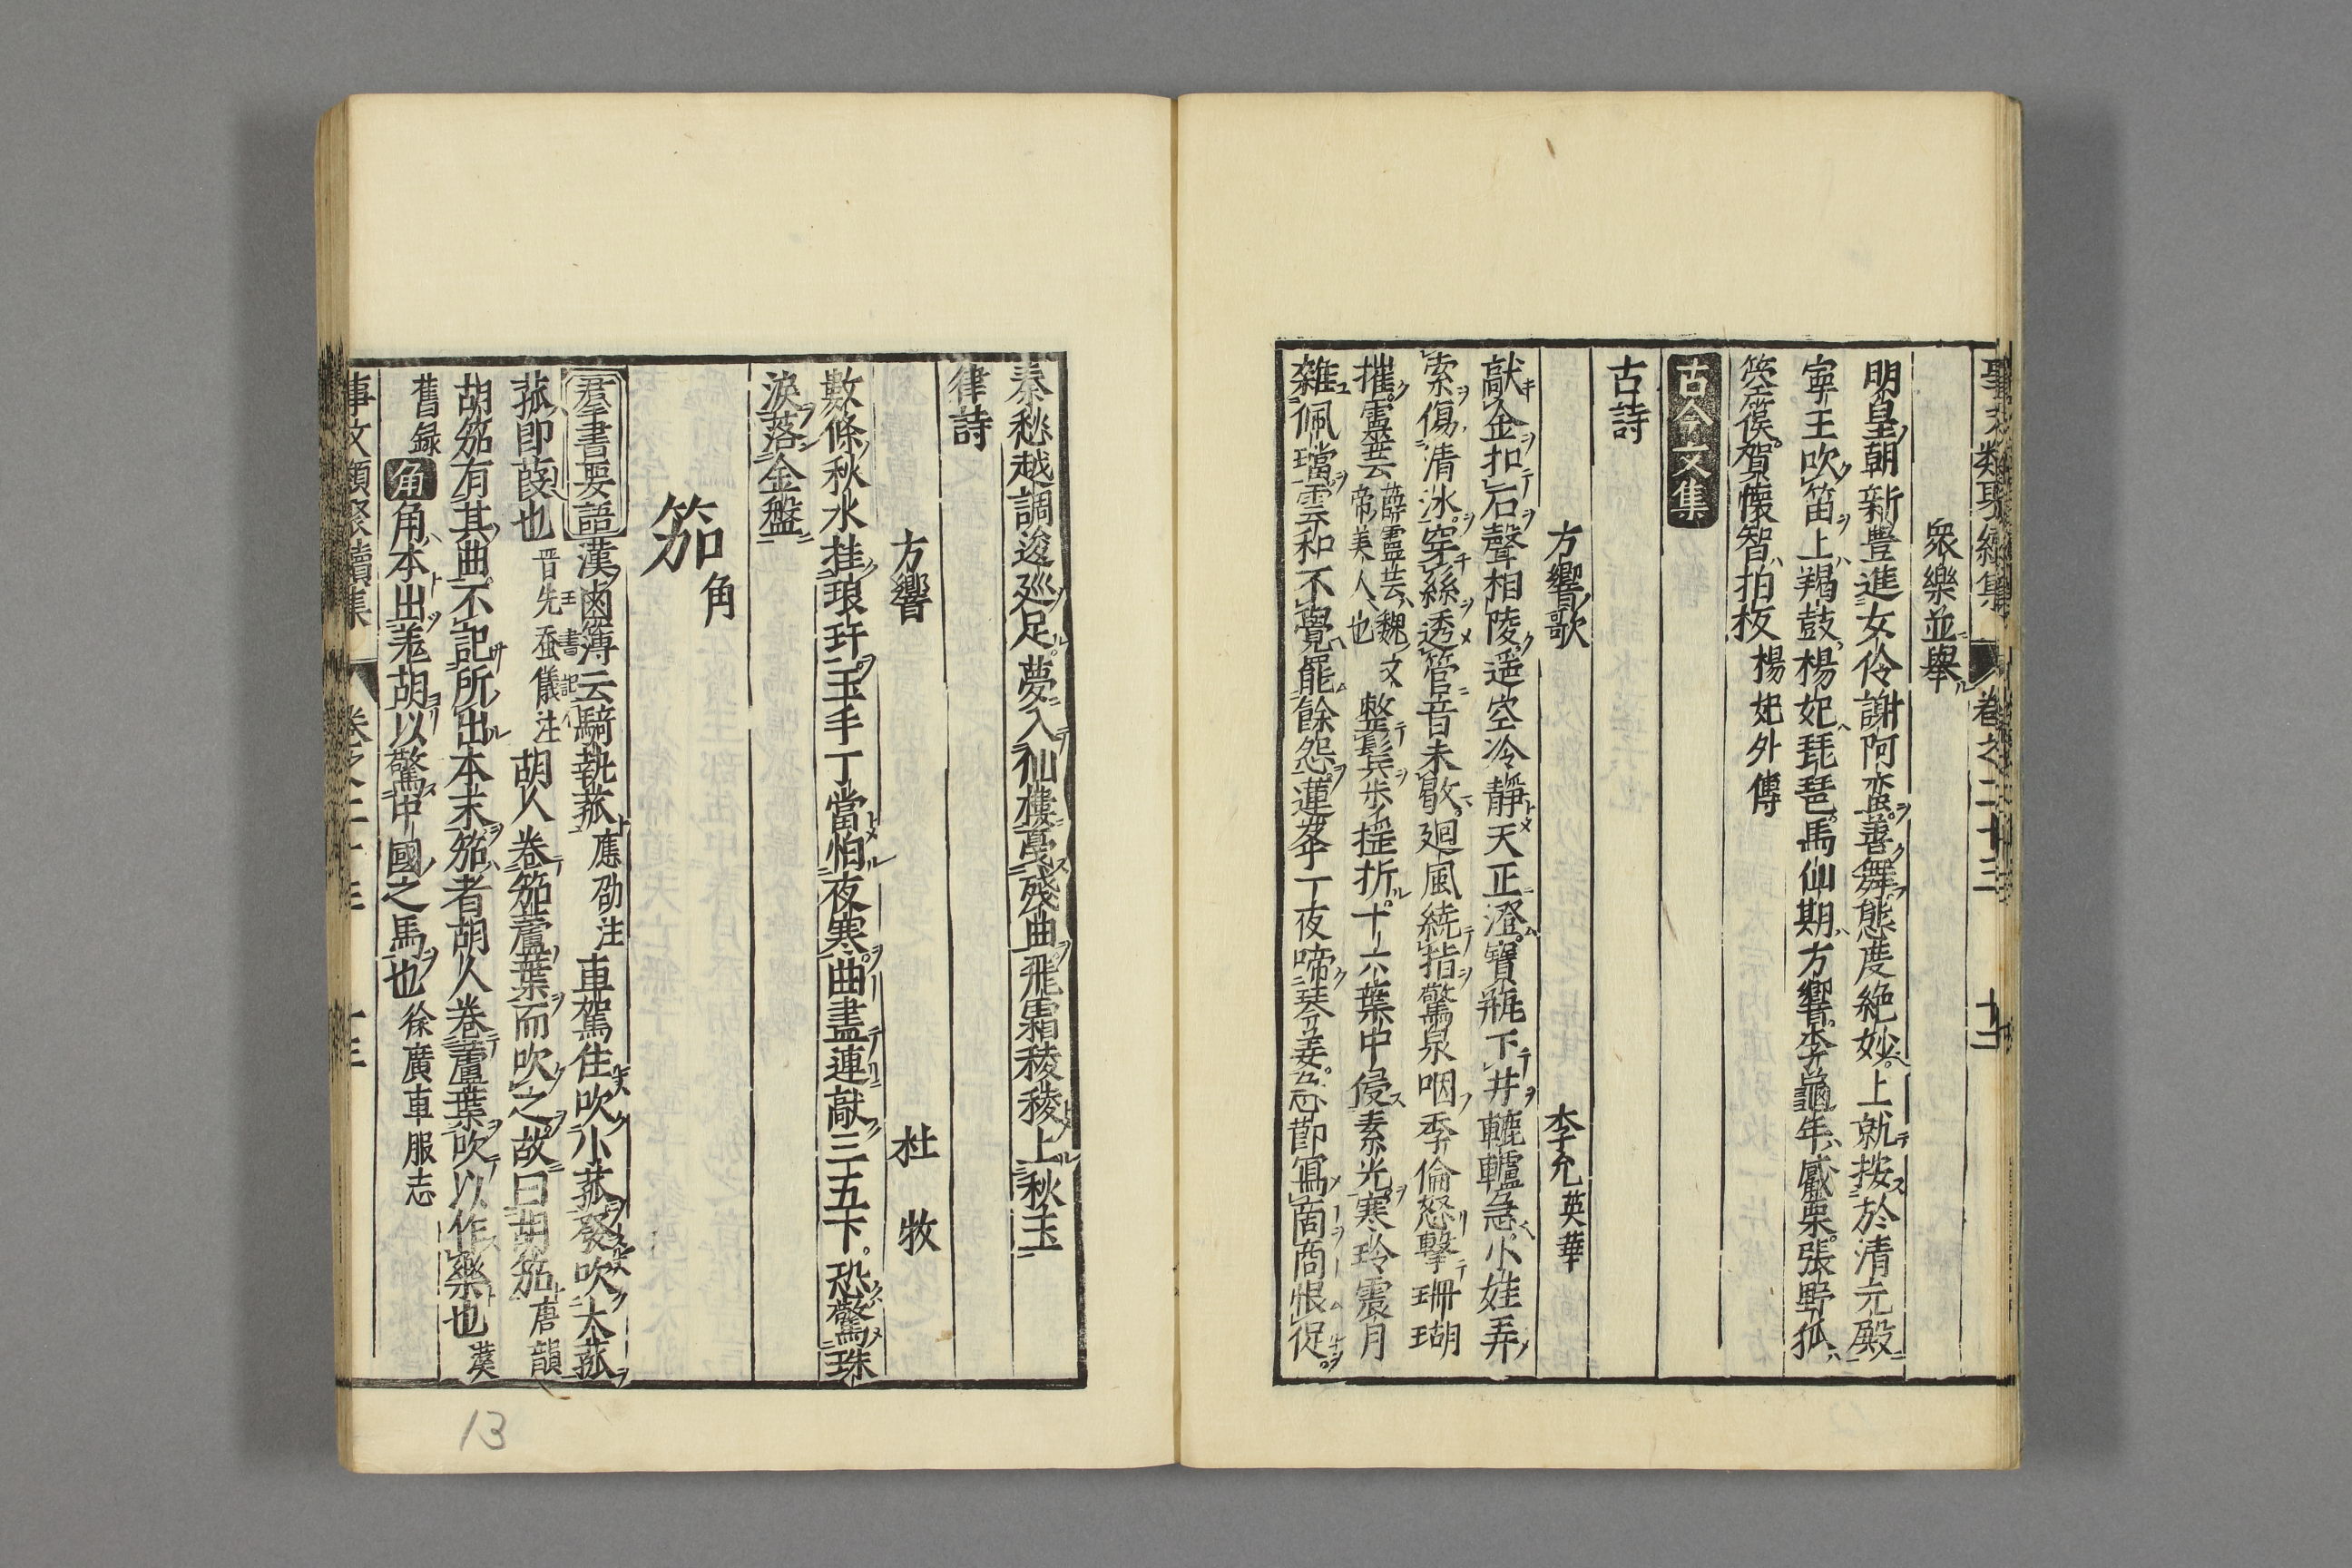 事文類聚續集 卷之二十三 十三
衆樂並舉
明皇朝新豊進女伶謝阿蛮善舞態度絶妙上就按於清元殿
寧王吹笛上羯鼓楊妃琵琶馬仙期方響李龜年觱栗張野狐
箜篌賀懷智拍板 楊妃外傳
古今文集
古詩
方響歌 李允 英華
敲金扣石聲相陵遥空冷靜天正澄寶瓶下井轆轤急小娃弄
索傷清氷穿絲透管音未歇廻風繞指驚泉咽季倫怒擊珊瑚
摧靈芸 薛靈芸魏文帝美人也 整鬂步揺折十六葉中侵素光寒玲震月
雜佩璫雲和不覺罷餘怨蓮峯一夜啼琴姜急節寫商商恨促
秦愁越調逡廵足夢入仙樓戞殘曲飛霜稜稜上秋玉
律詩
方響 杜牧
數條秋水挂琅玕玉手丁當怕夜寒曲盡連敲三五下恐驚珠
淚落金盤
笳 角
羣書要語 漢鹵簿云騎執菰 應劭注 車駕住吹小菰發吹大菰
菰卽葭也 晋先蚕儀注 胡人卷笳蘆葉而吹之故曰胡笳 唐韻
胡笳有其曲不記所出本末笳者胡人卷蘆葉吹以作樂也 漢
舊録 角 角本出羗胡以驚中國之馬也 徐廣車服志
事文類聚續集 卷之二十三 十三
13